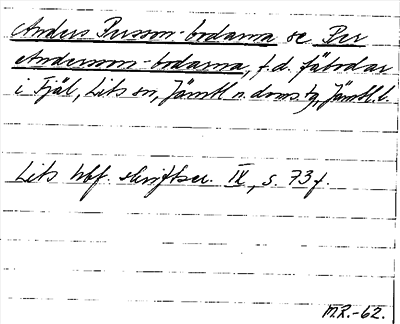 Anders Persson-bodarna se Per
Andersson-bodarna, f.d. fäbodar
i Fjäl, Lits sn, Jämtl n. doms tg, Jämtl. l.
Lits hbf. skriftser. IX, s. 73 f.
M.R.-62.